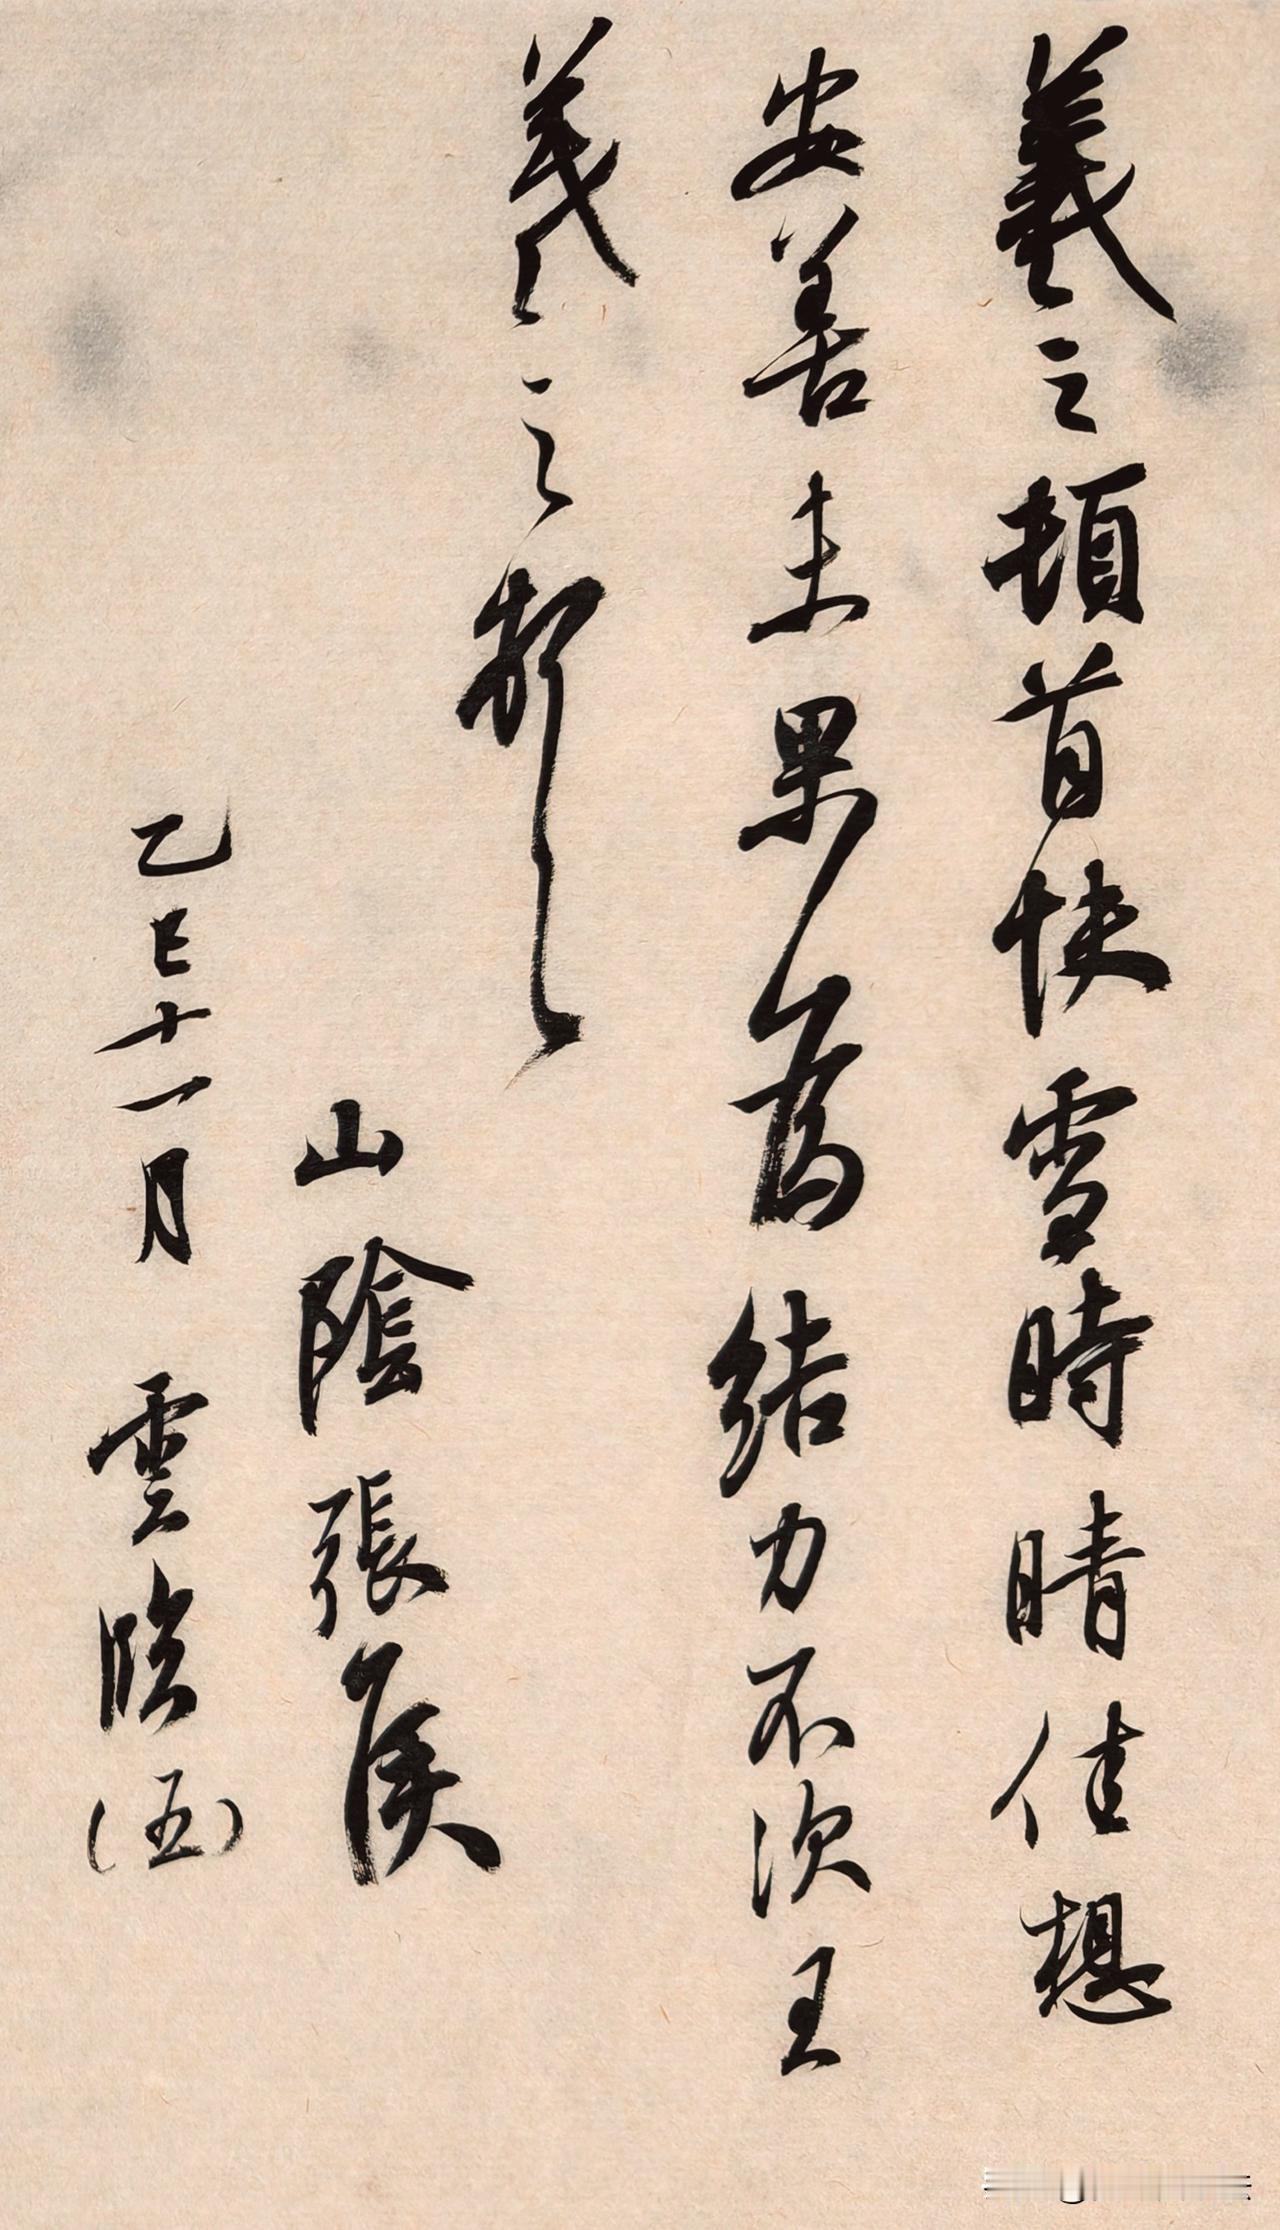 羲之頓首快雪時晴佳想
安善未果為結力不次王
羲之頓
山陰張侯
乙巳十一月 雲臨(五)